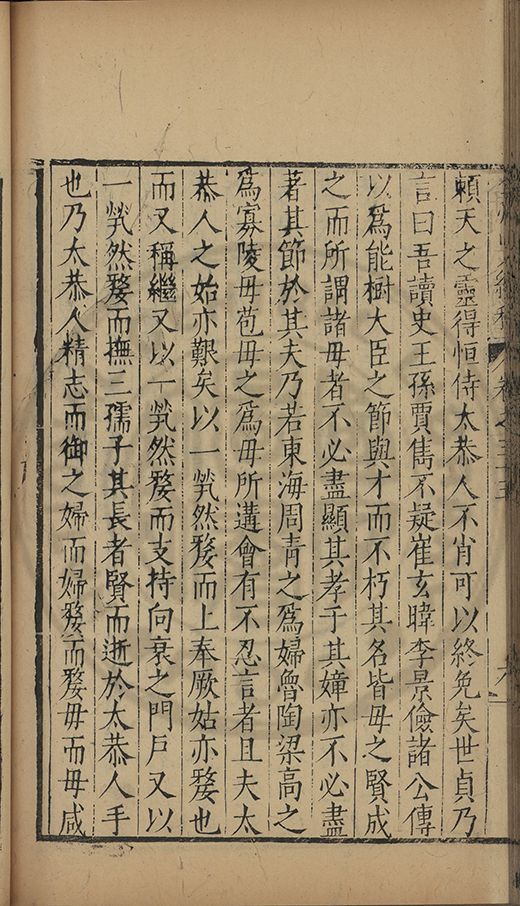 賴天之靈得恒侍太恭人不肖可以終免矣世貞乃
言曰吾讀史王孫賈雋不疑崔玄暐李景儉諸公傳
以爲能樹大臣之節與才而不朽其名皆毋之賢成
之而所謂諸毋者不必盡顯其孝于其嫜亦不必盡
著其節於其夫乃若東海周青之爲婦魯陶梁高之
爲寡陵毋苞毋之爲毋所遘會有不忍言者且夫太
恭人之始亦艱矣以一煢然嫠而上奉厥姑亦嫠也
而又稱繼又以一煢然嫠而支持向衰之門戶又以
一煢然嫠而撫三孺子其長者賢而逝於太恭人手
也乃太恭人精志而御之婦而婦嫠而嫠毋而毋咸